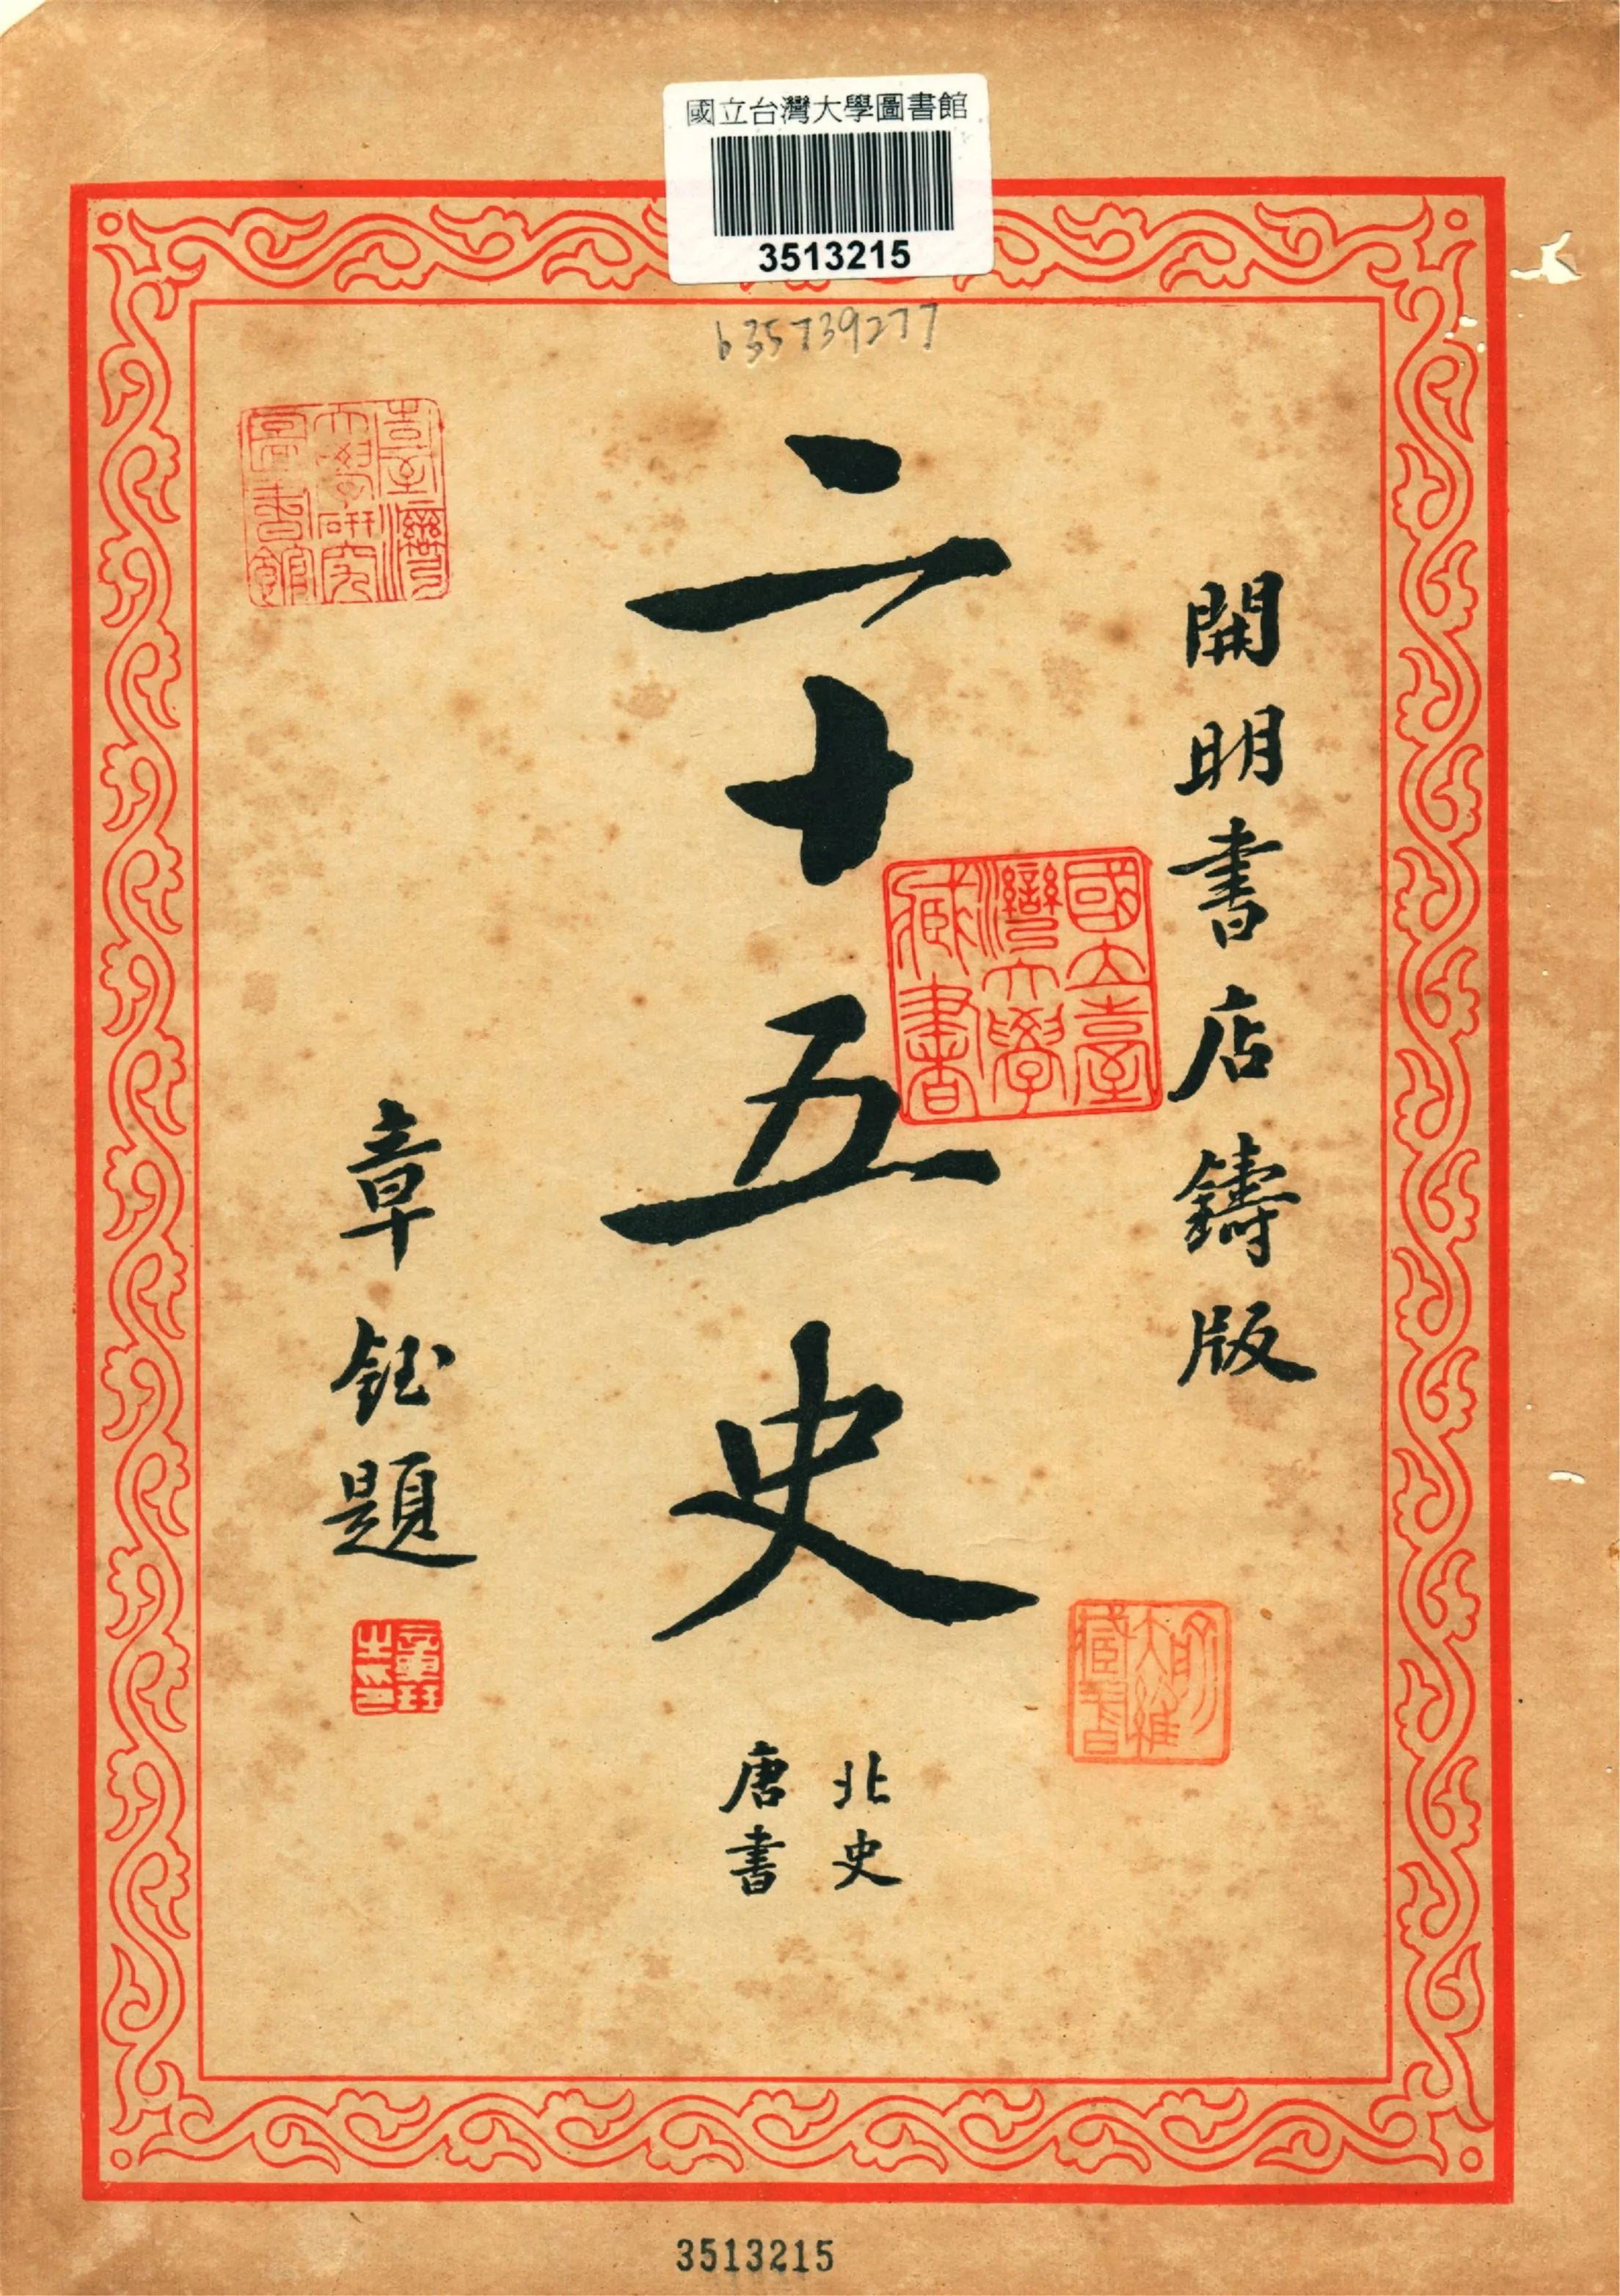 國立台灣大學圖書館
3513215
635739277
開明書店鑄版
二十五史
北史
唐書
章鈺題
臺灣大學研究圖書館
國立臺灣大學藏書
3513215